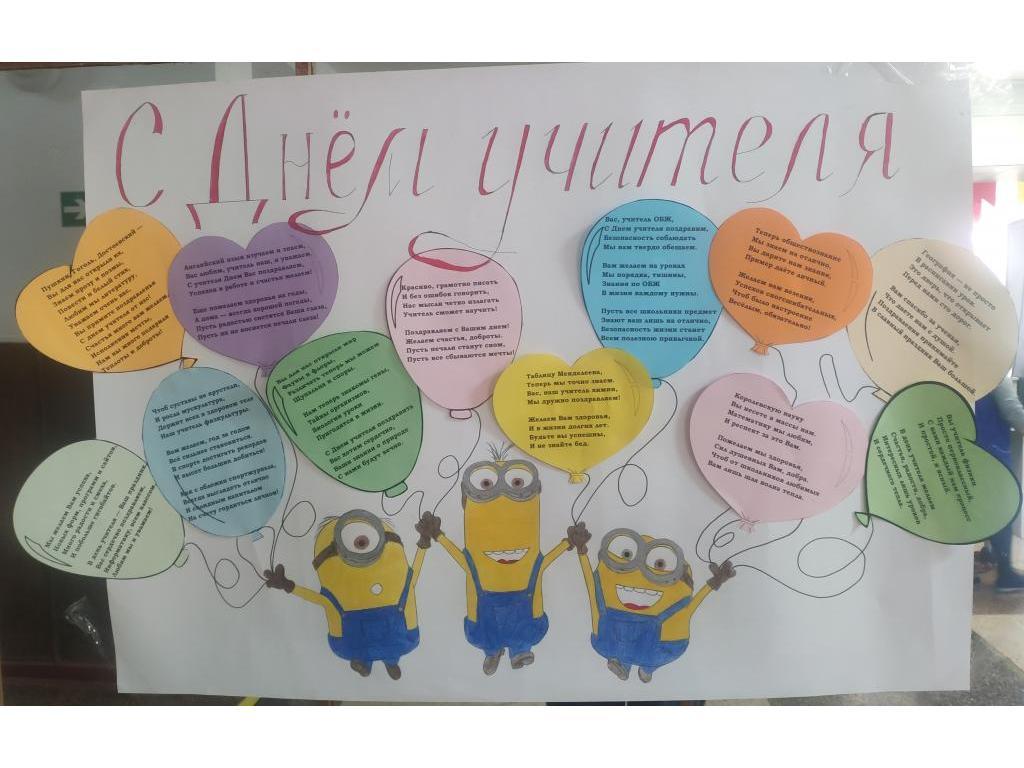 С Днём учителя
Пушкин, Гоголь, Достоевский —
Вы для нас открыли их,
Знаем прозу и поэмы,
Повести и белый стих,
Любим мы литературу,
Уважаем очень вас,
Вы примите поздравленья
С днём учителя от нас!
Счастья много вам желаем,
Исполнения мечты,
Теплоты и доброты!
Английский язык изучаем и знаем,
Вас любим, учитель наш, и уважаем,
С учителя Днем Вас поздравляем,
Успехов в работе и счастья желаем!
Еще пожелаем здоровья на годы,
А дома — всегда хорошей погоды,
Пусть радостью светятся Ваши глаза,
Пусть их не коснется печали слеза!
Красиво, грамотно писать
И без ошибок говорить,
Нас мысли четко излагать
Учитель сможет научить!
Поздравляем с Вашим днем!
Желаем счастья, доброты.
Пусть печали станут сном,
Пусть все сбываются мечты!
Вас, учитель ОБЖ,
С Днем учителя поздравим,
Безопасность соблюдать
Мы вам твердо обещаем.
Вам желаем на уроках
Мы порядки, тишины,
Знания по ОБЖ
В жизни каждому нужны.
Пусть все школьники предмет
Знают ваш лишь на отлично,
Безопасность жизни станет
Всем полезною привычкой.
Теперь обществознание
Мы знаем на отлично,
Вы дарите нам знания,
Пример даёте личный.
Желаем вам везения,
Успехов сногсшибательных,
Чтоб было настроение
Весёлым, обязательно!
География — не просто
В расписании урок.
Это дверь, что открывает
Перед нами сто дорог.
Вам спасибо за ученья,
Что даете нам с душой.
Поздравления принимайте
В славный праздник Ваш большой.
Чтоб суставы не хрустели,
И росла мускулатура,
Держит всех в здоровом теле
Наш учитель физкультуры.
Вам желаем, год за годом
Всё сильнее становиться,
В спорте достигать рекордов
И высот больших добиться!
Как с обложки спортжурнала,
Всегда выглядеть отлично
И солидным капиталом
На счету гордиться личном!
Вы для нас открыли мир
Фауны и флоры,
Различать теперь мы можем
Щупальца и споры.
Нам теперь знакомы гены,
Тайны организмов,
Биологии уроки
Пригодятся в жизни.
С Днем учителя поздравить
Вас хотим сердечно,
Ваши знания о природе
С нами будут вечно.
Таблицу Менделеева,
Теперь мы точно знаем.
Вас, наш учитель химии,
Мы дружно поздравляем!
Желаем Вам здоровья,
И в жизни долгих лет.
Будьте вы успешны,
И не знайте бед.
Королевскую науку
Вы несете в массы нам.
Математику мы любим,
И респект за это Вам.
Пожелаем мы здоровья,
Сил душевных Вам, добра.
Чтоб от школьников любимых
Вам лишь шла волна тепла.
Мы желаем Вам удачи,
В день учителя — Ваш праздник,
Вас сердечно поздравляем,
Любим мы и уважаем!
Вы учитель физики
В день учителя желаем
Счастья, радости, добра,